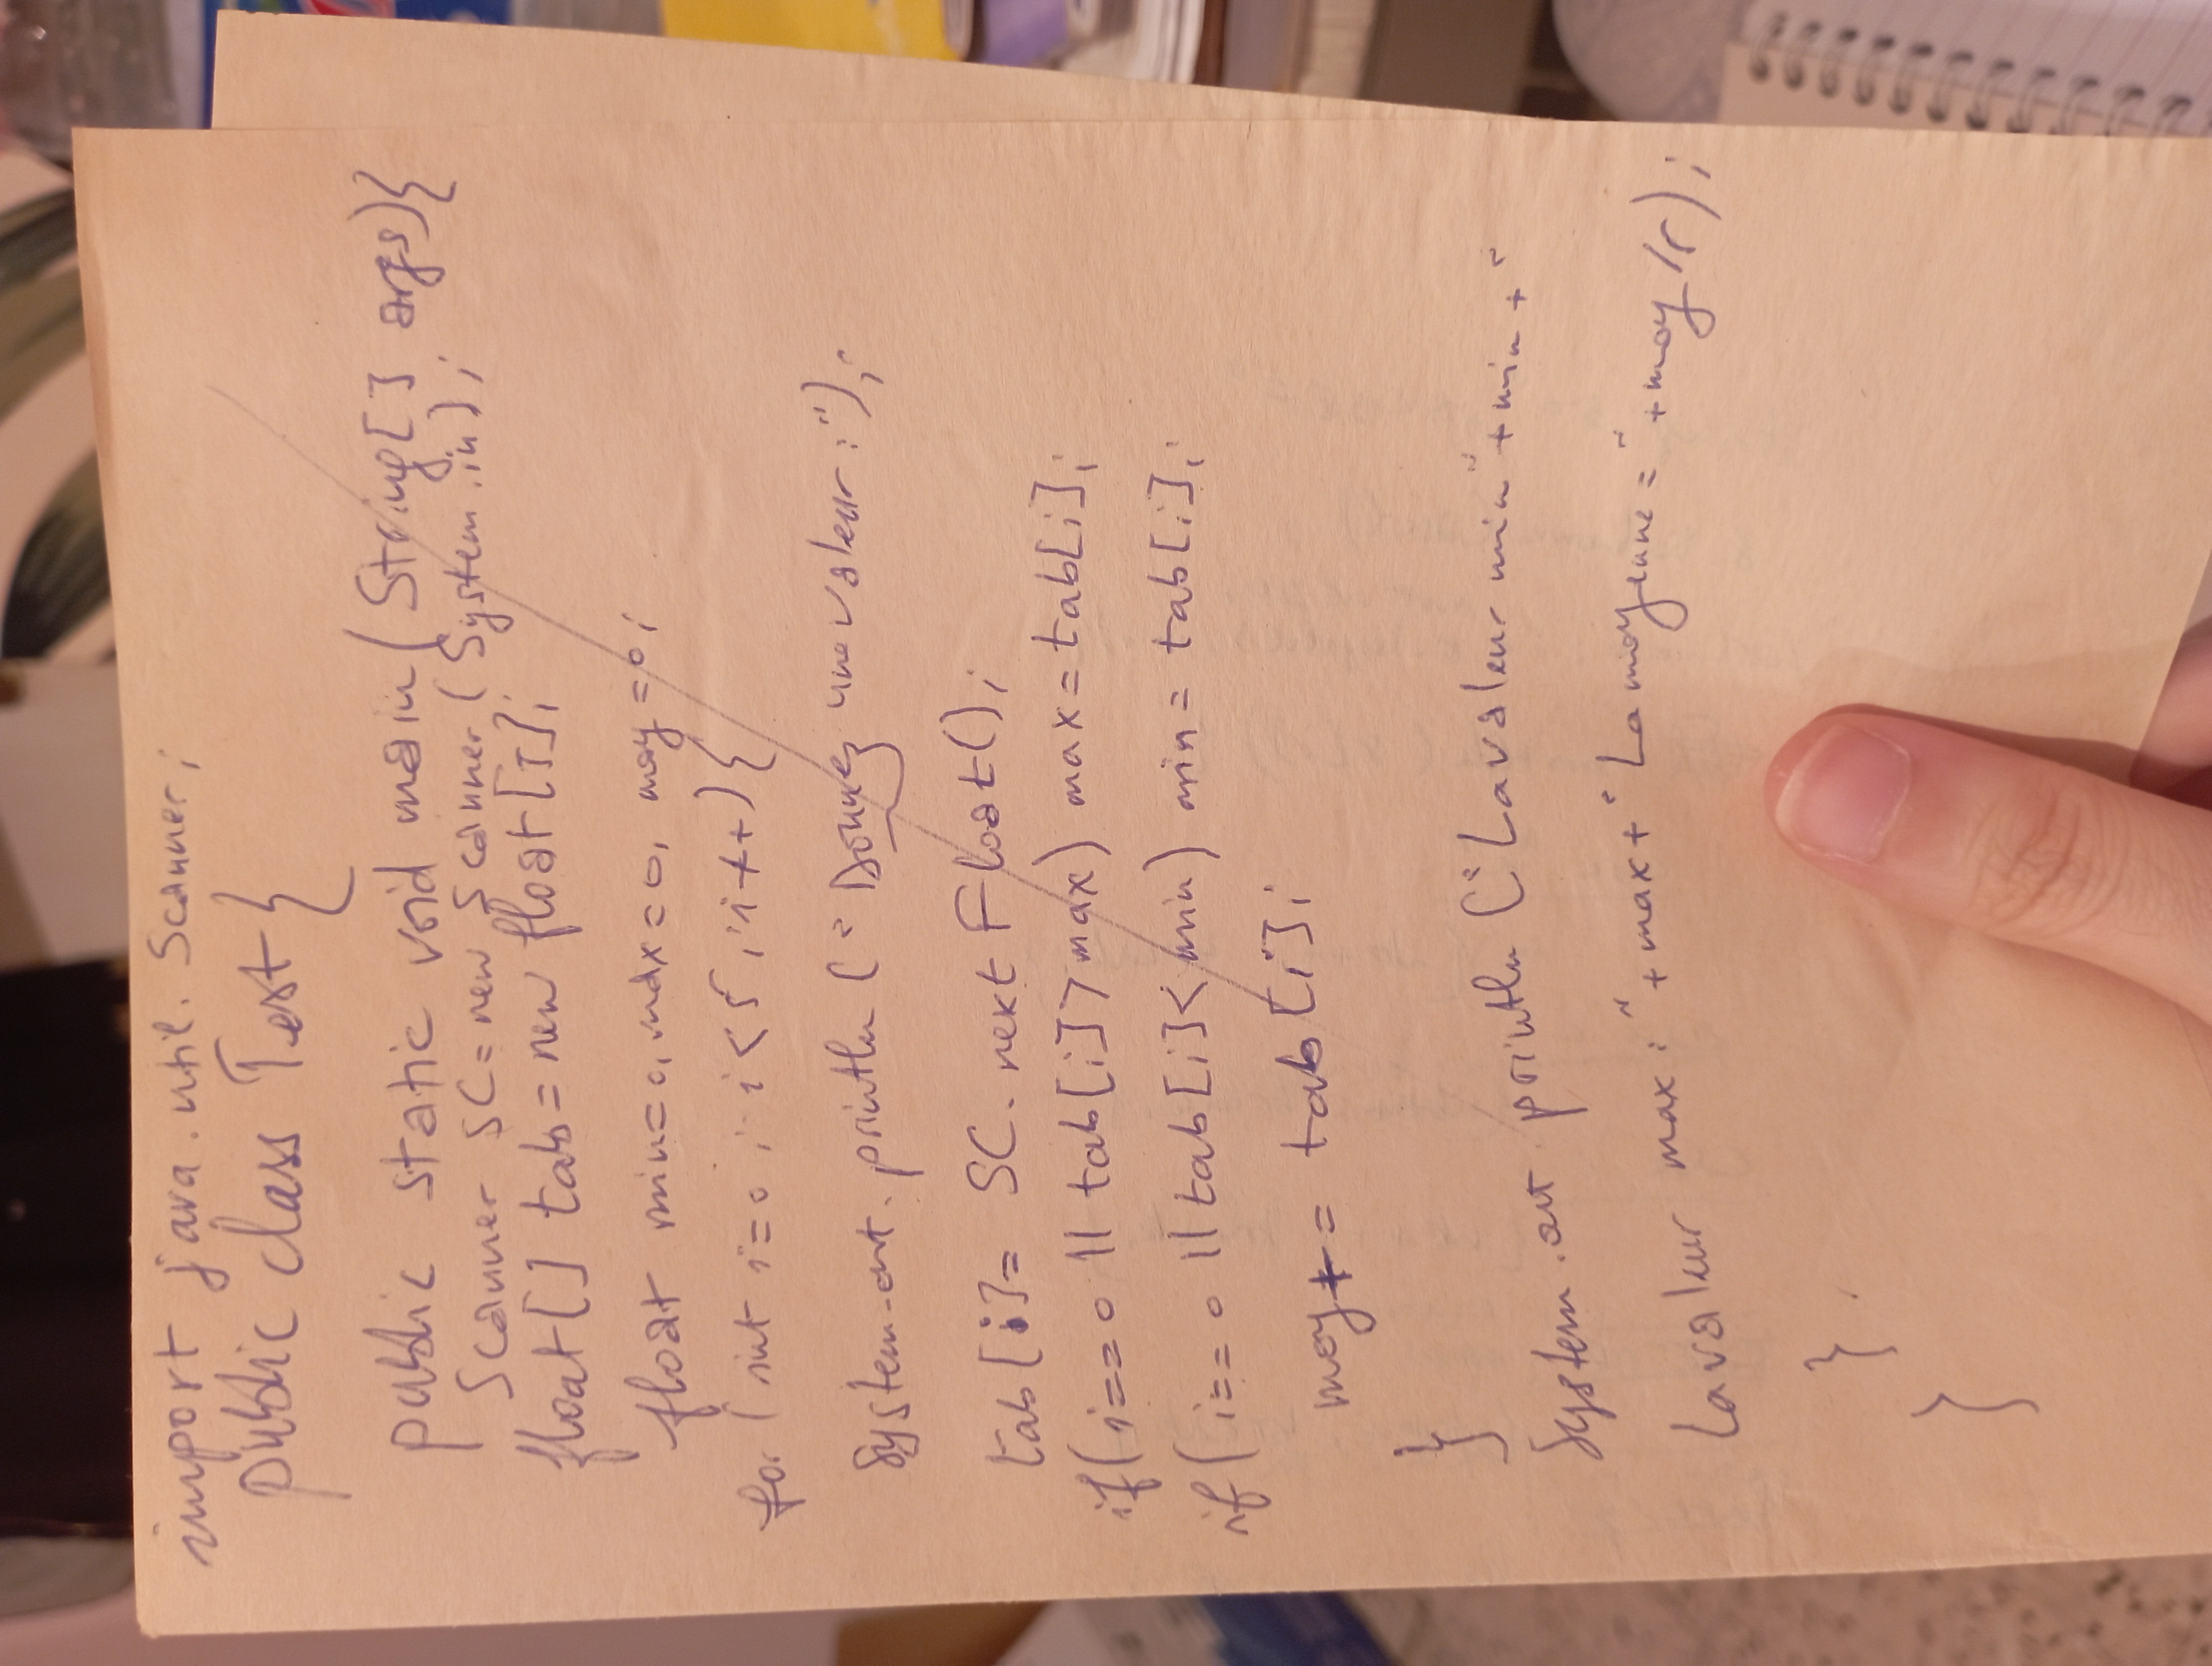 import java.util.Scanner;
public class Test{
public static void main(String[] args){
Scanner SC=new Scanner(System.in);
float[] tab=new float[5];
float min=0, max=0, moy=0;
for(int i=0; i<5; i++){
System.out.println("Donnez une valeur:");
tab[i]= SC.nextFloat();
if(i==0 || tab[i]>max) max=tab[i];
if(i==0 || tab[i]<min) min=tab[i];
moy+=tab[i];
}
System.out.println("La valeur min"+min+"
La valeur max:"+max+"La moyenne="+moy/5);
}
}